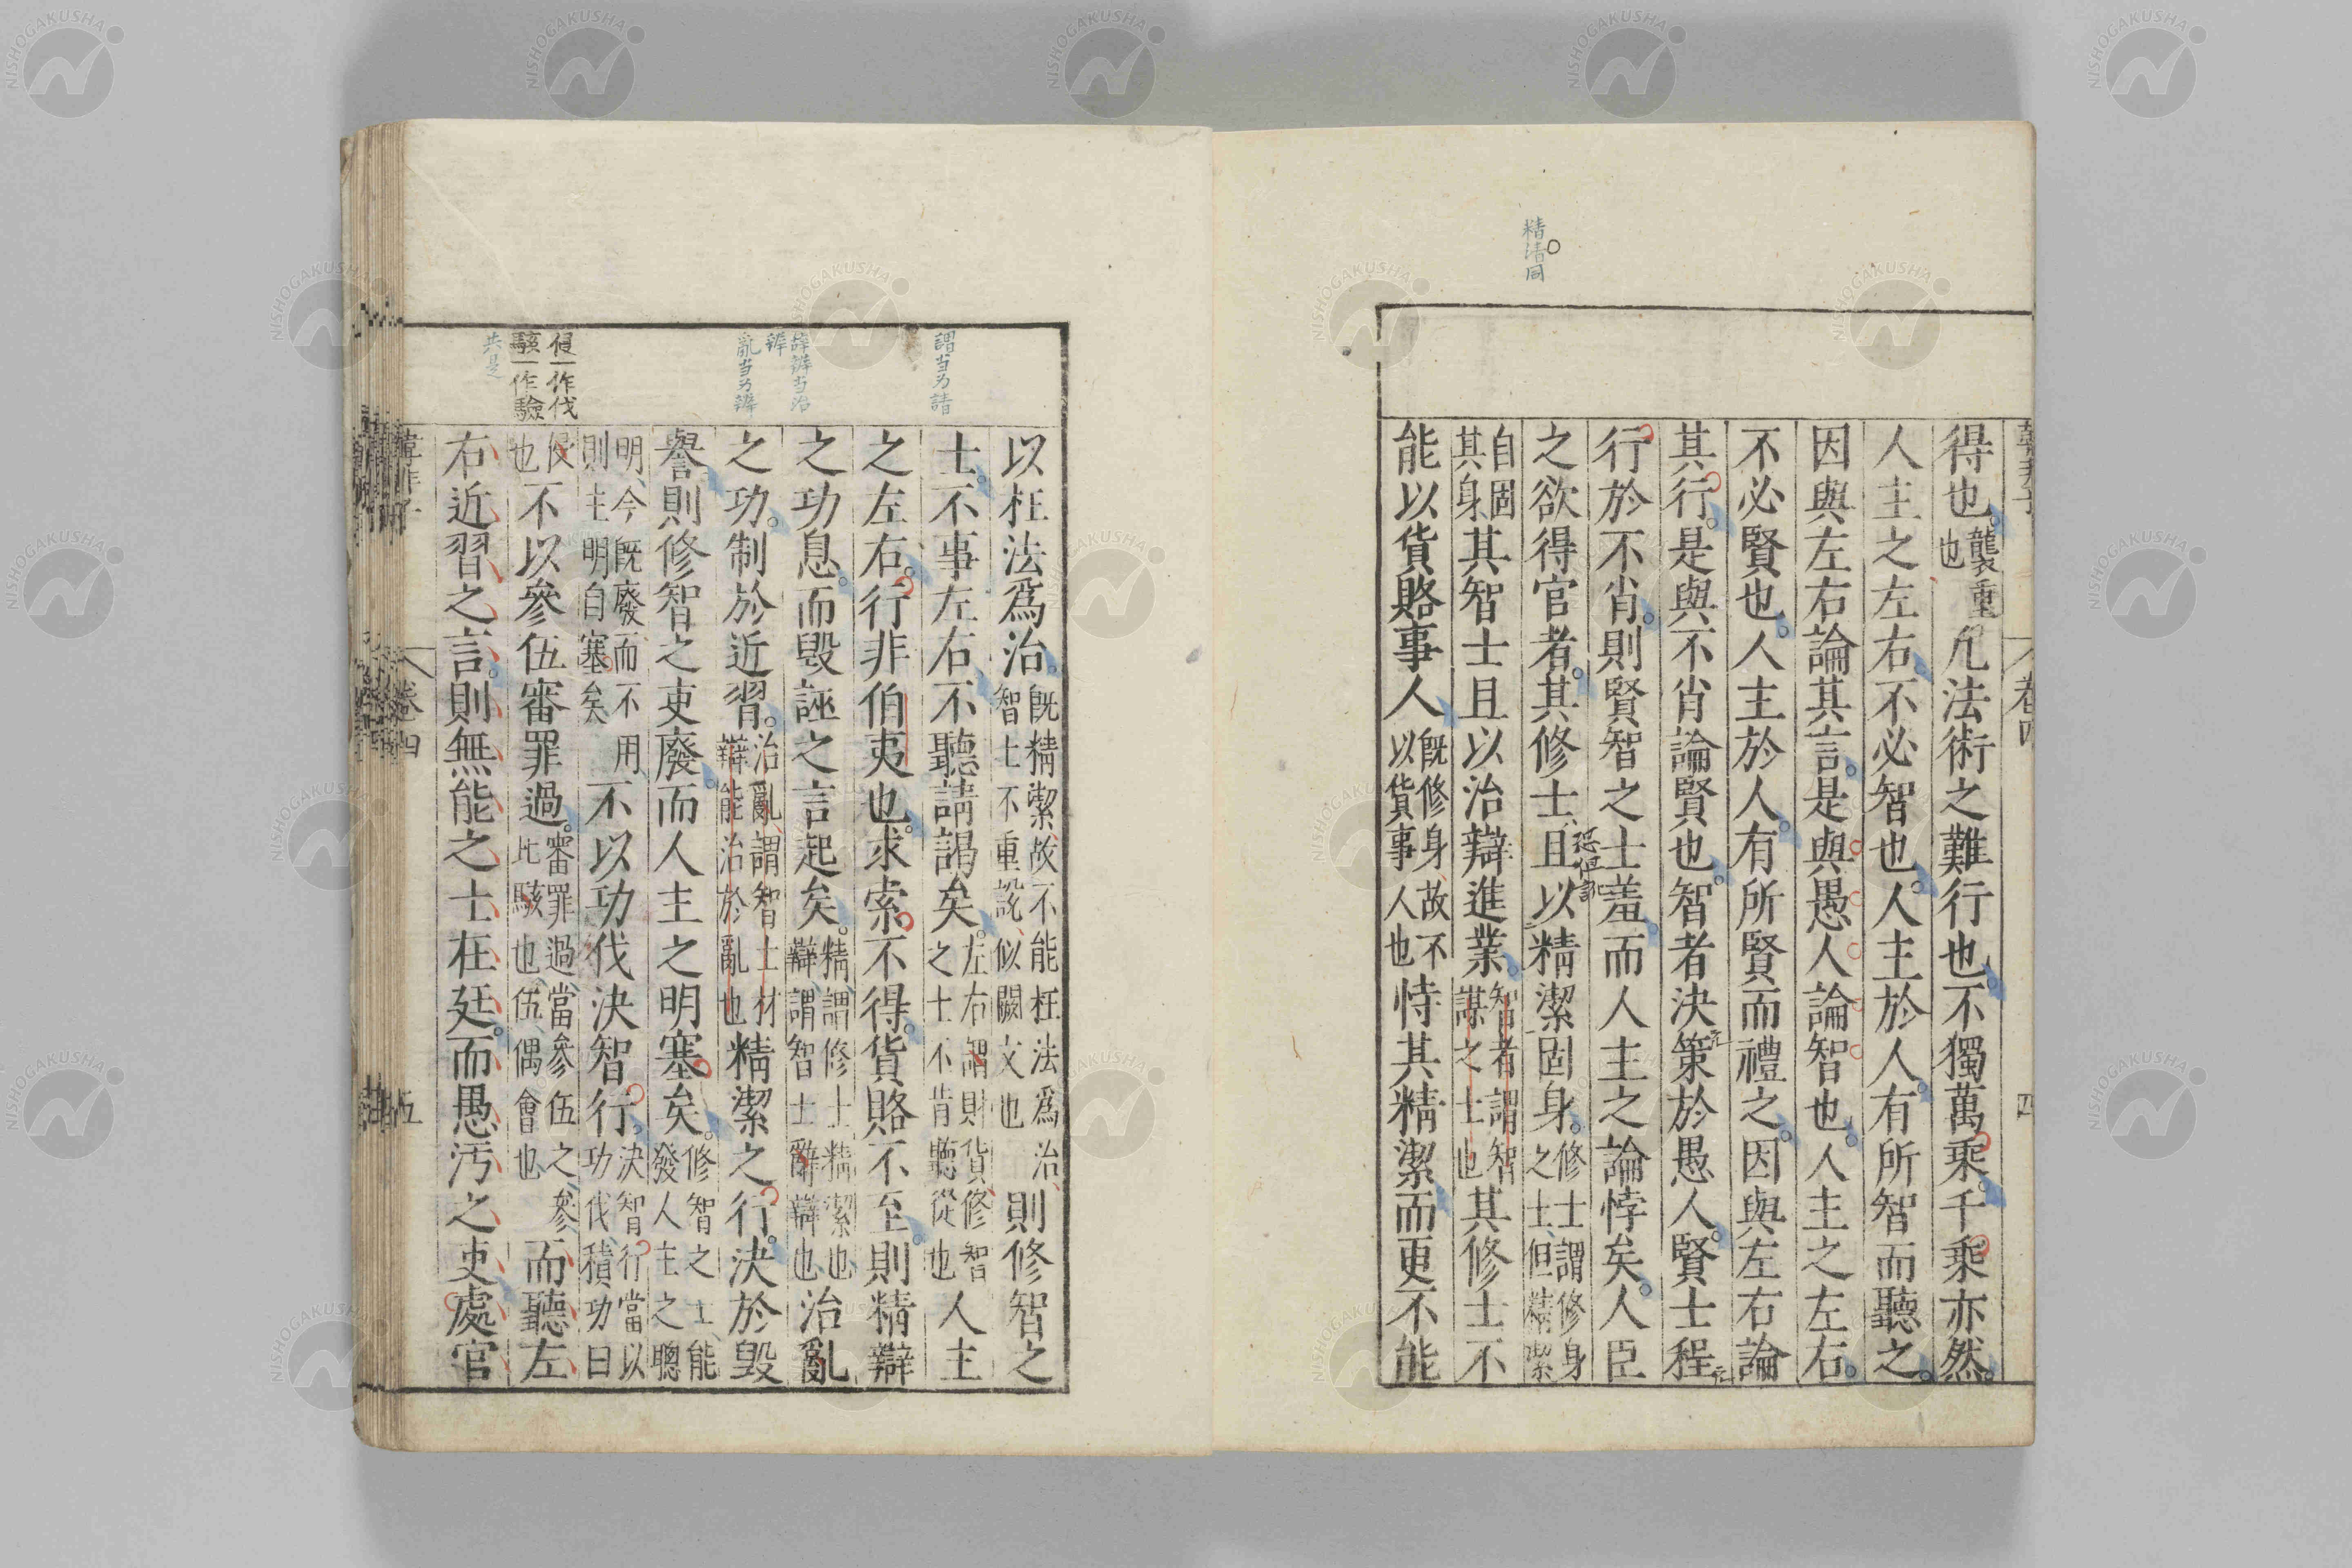 精清同
得也襲重也凡法術之難行也不獨萬乘千乘亦然
人主之左右不必智也人主於人有所智而聽之
因與左右論其言是與愚人論智也人主之左右
不必賢也人主於人有所賢而禮之因與左右論
其行是與不肖論賢也智者決策於愚人賢士程
行於不肖則賢智之士羞而人主之論悖矣人臣
之欲得官者其修士且以精潔固身修士謂修身之士但精潔
自固其身其智士且以治辯進業智者謂智謀之士也其修士不
能以貨賂事人既修身故不以貨事人也恃其精潔而更不能
卷四
四
謂当为請
辞辨当治辨
亂当为辨
侵一作伐
駭一作驗
共是
以枉法爲治既精潔故不能枉法爲治智士不重說似闕文也則修智之
士不事左右不聽請謁矣左右謂財貨修智之士不肯聽從也人主
之左右行非伯夷也求索不得貨賂不至則精辯
之功息而毀誣之言起矣精謂修士精潔也辯謂智士辭辯也治亂
之功制於近習治亂謂智士材辯能治於亂也精潔之行決於毀
譽則修智之吏廢而人主之明塞矣修智之士能發人主之聰
明今既廢而不用則主明自塞矣不以功伐決智行決智行當以功伐積功曰
侵也不以參伍審罪過審罪過當參伍之參比駭也伍偶會也而聽左
右近習之言則無能之士在廷而愚汚之吏處官
韓非子
卷四
五
NISHOGAKUSHA